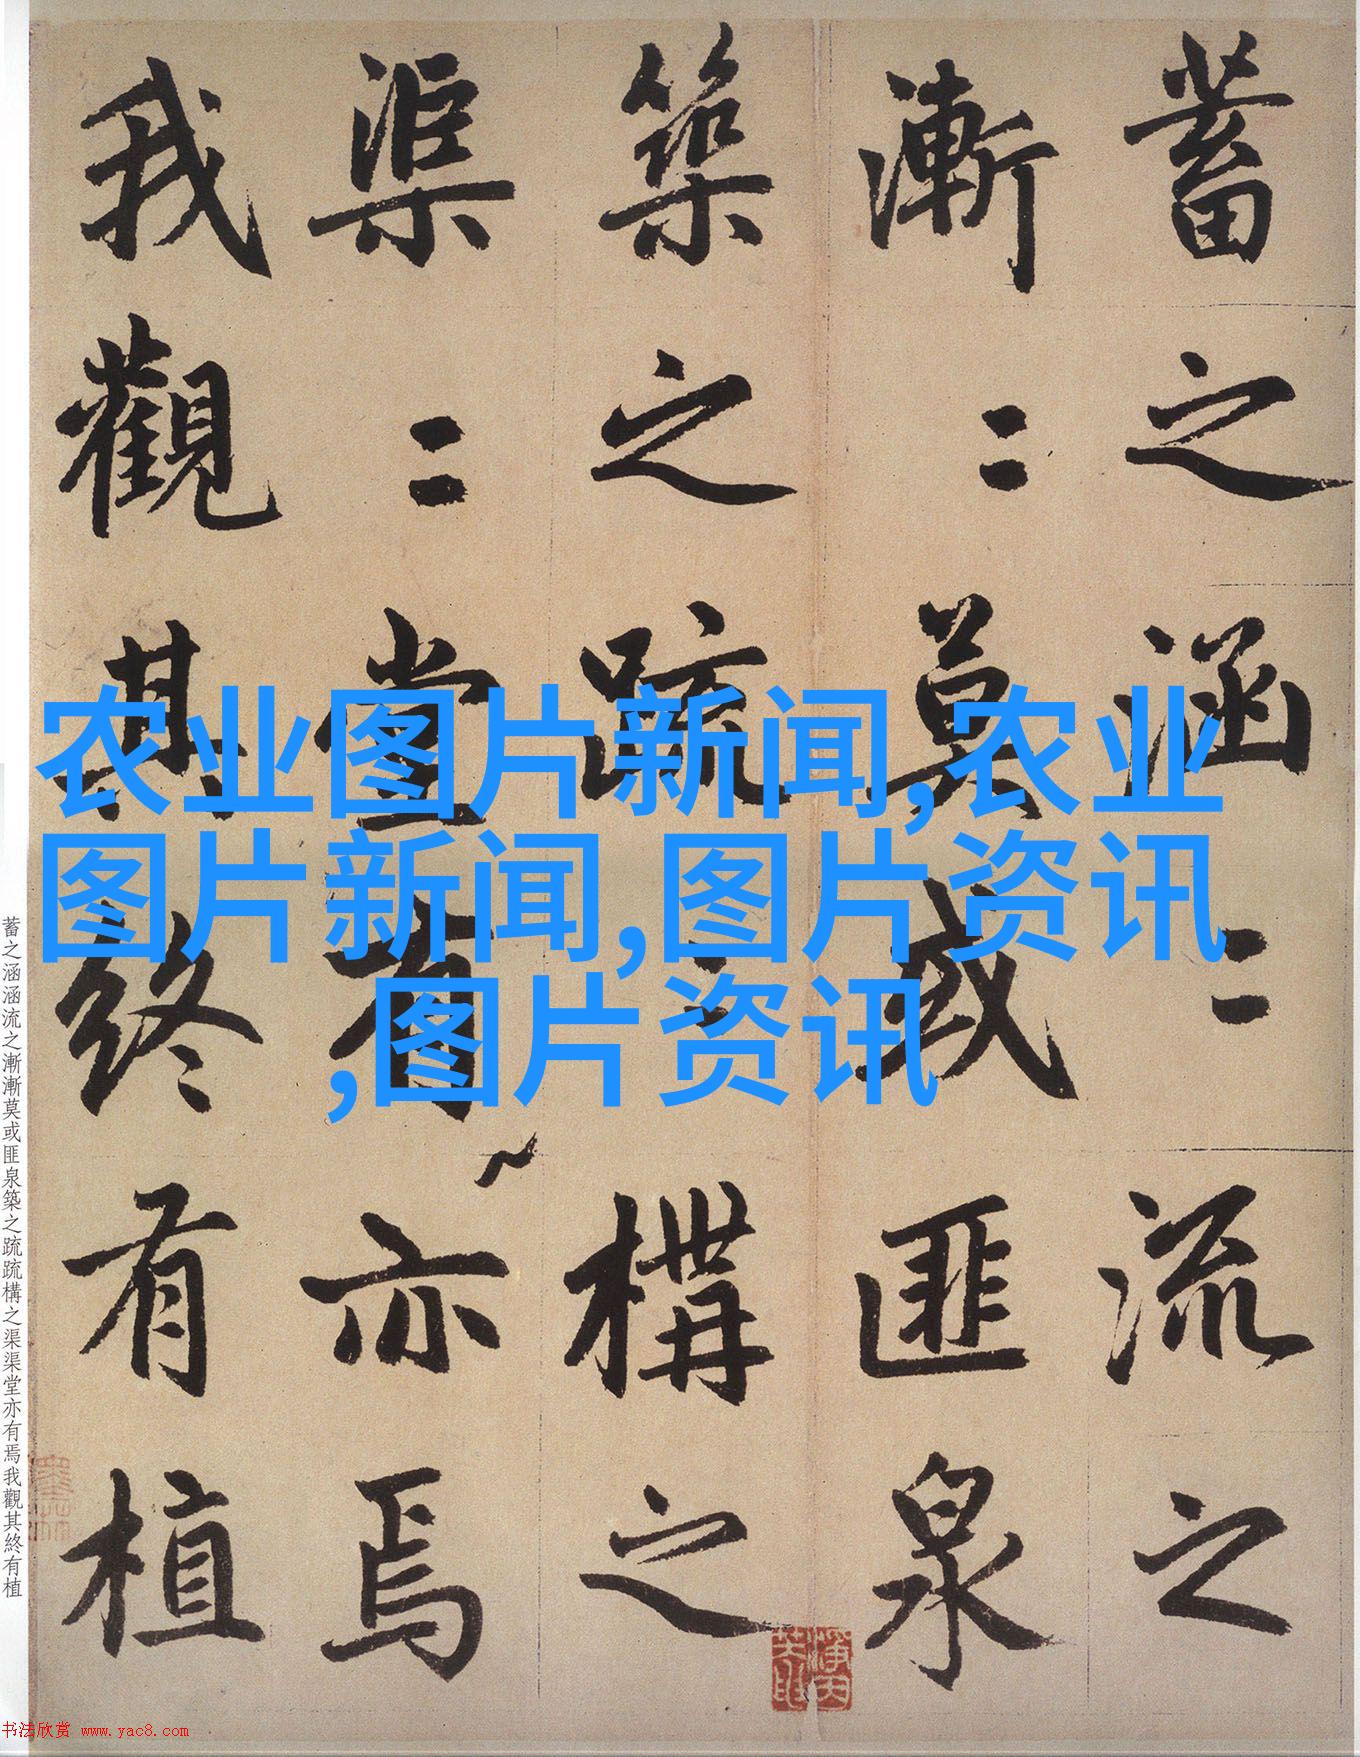 蓄之涵〻流之
漸〻莫或匪泉
築之疏〻構之
渠〻堂有亦焉
我觀其終有植
农业图片新闻,农业
图片新闻,图片资讯
,图片资讯
蓄之涵涵流之漸漸莫或匪泉築之疏疏構之渠渠堂亦有焉我觀其終有植
书法欣赏 www.yac8.com